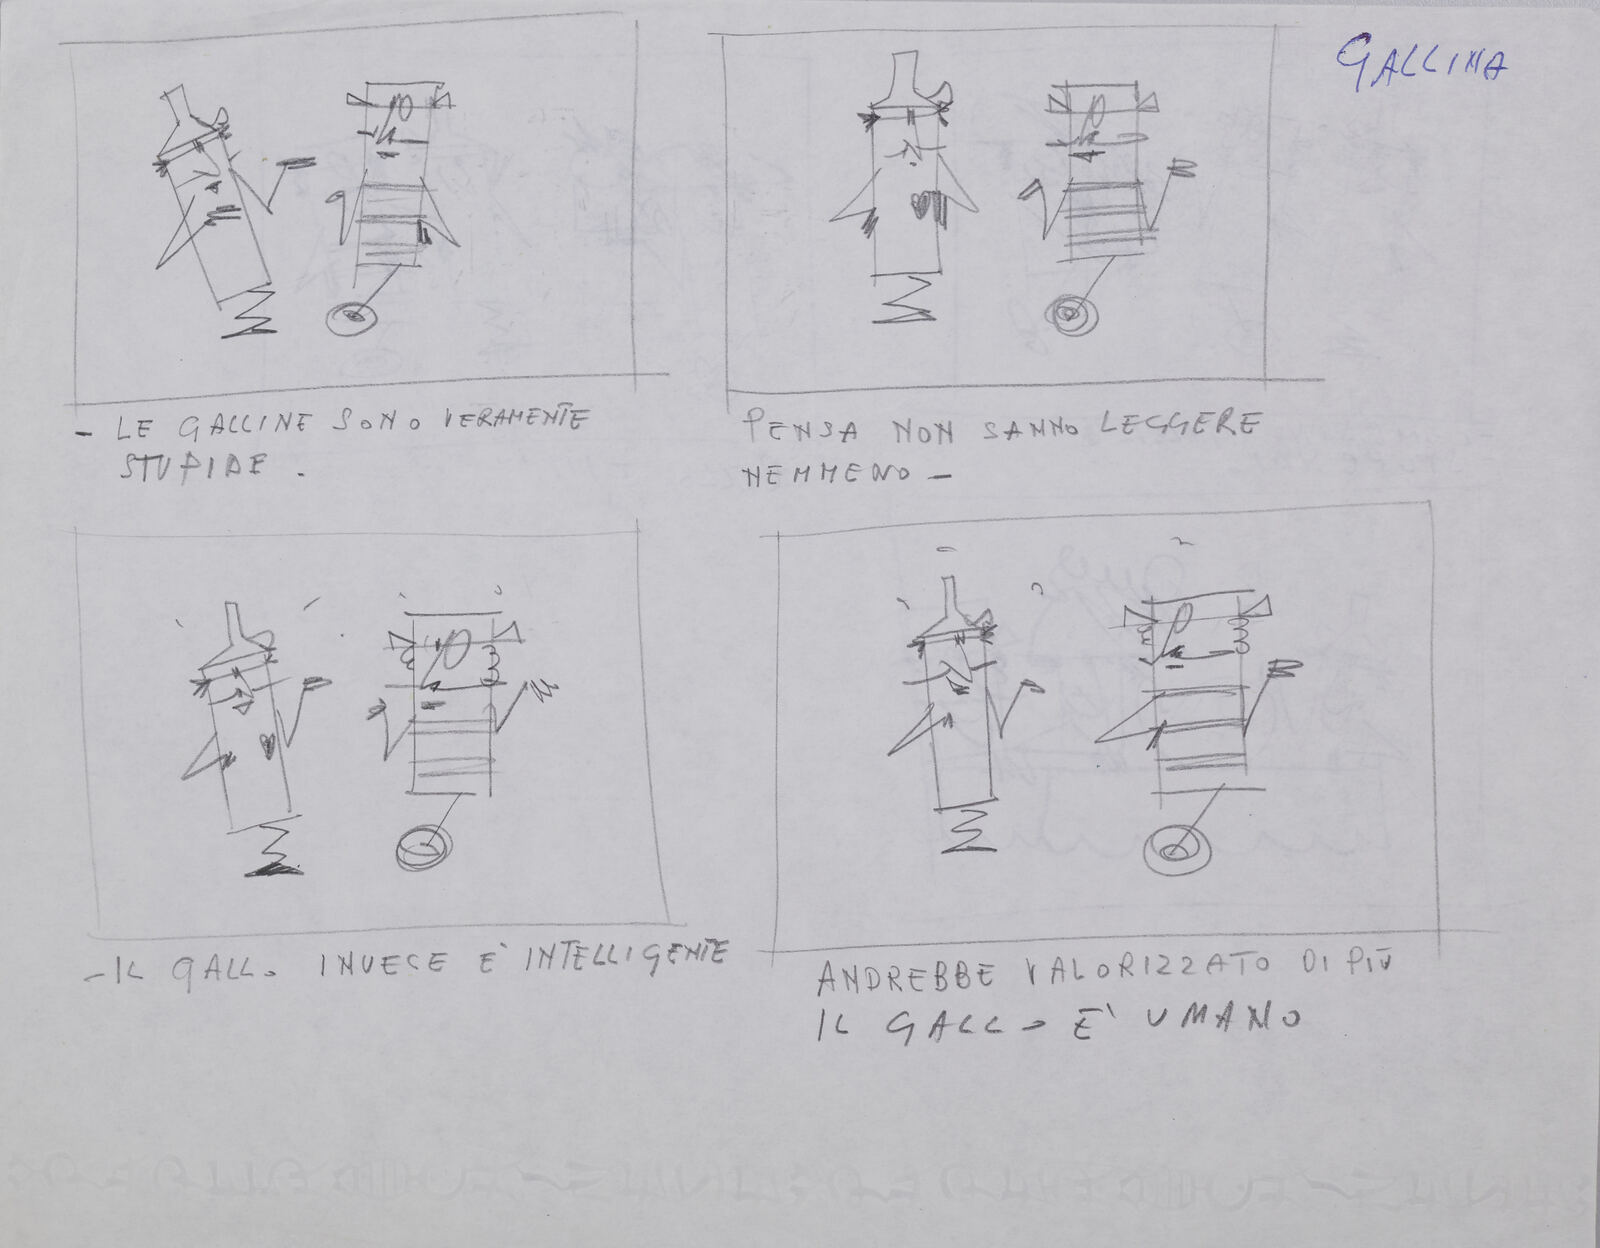 GALLINA
- LE GALLINE SONO VERAMENTE
STUPIDE.
PENSA NON SANNO LEGGERE
NEMMENO -
- IL GALLO INVECE E' INTELLIGENTE
ANDREBBE VALORIZZATO DI PIÙ
IL GALLO E' UMANO